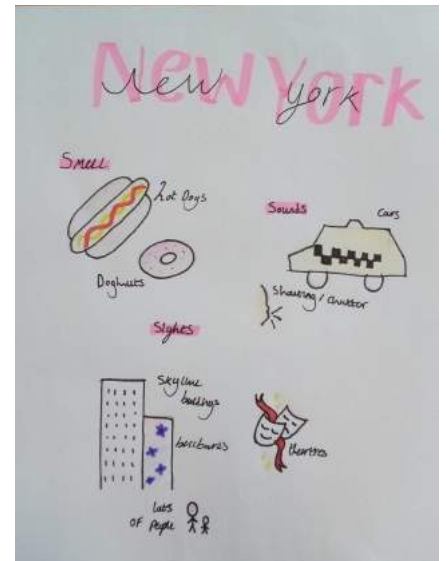 New York
New York
Smell
Hot Dogs
Doghnuts
Sounds
Cars
Shouting / chatter
Sights
Skyline
theatres
lots
of people